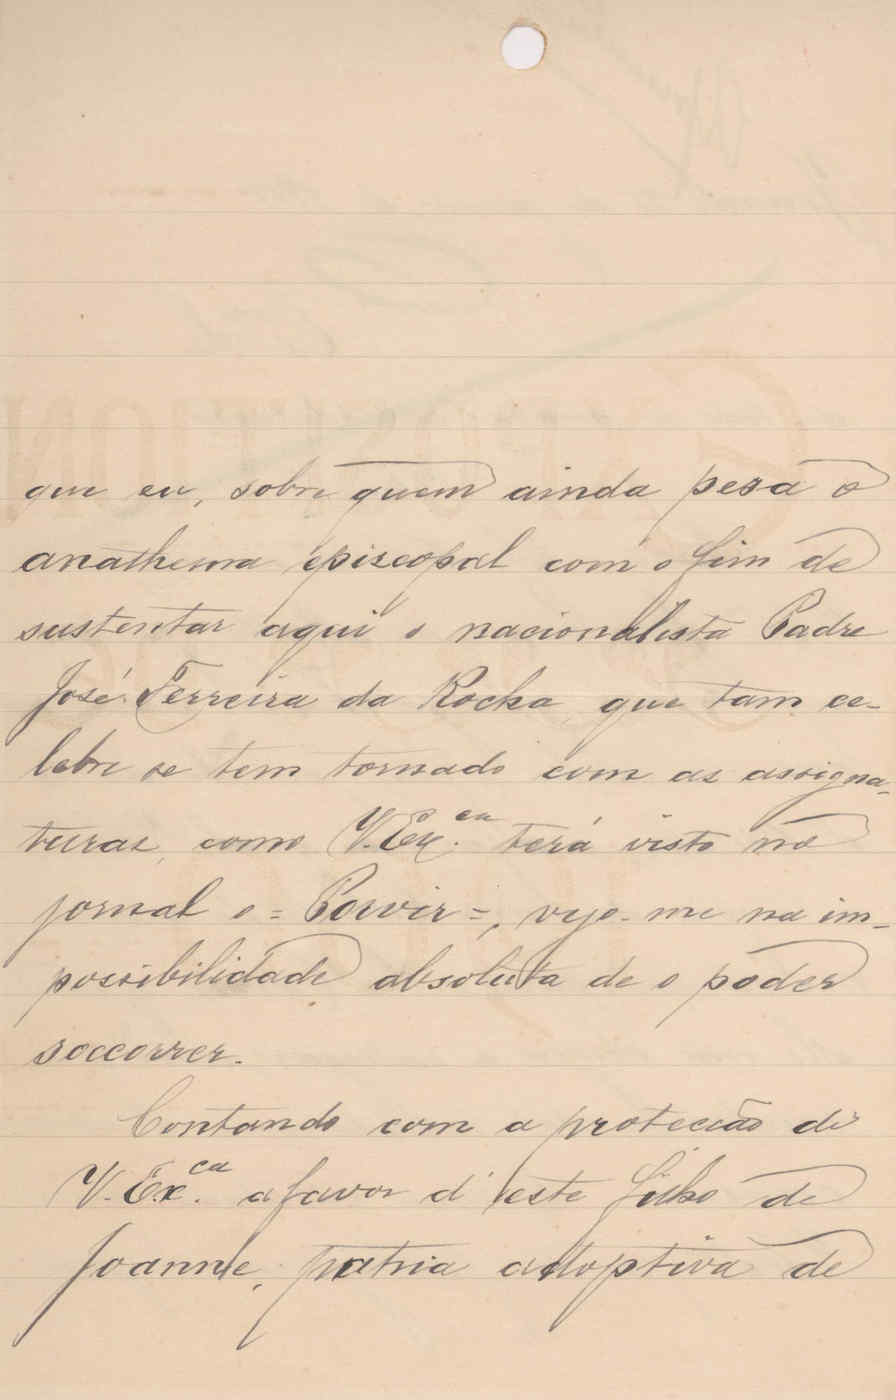 que eu, sobre quem ainda pesa o
anathema episcopal com o fim de
sustentar aqui o nacionalista Padre
José Ferreira da Rocha, que tam ce-
lebre se tem tornado com as assigna-
turas, como V. Ex.ca terá visto no
jornal o = Porvir =, vejo-me na im-
possibilidade absoluta de o poder
soccorrer.
Contando com a protecção de
V. Ex.ca a favor d'este filho de
Joanne, patria adoptiva de